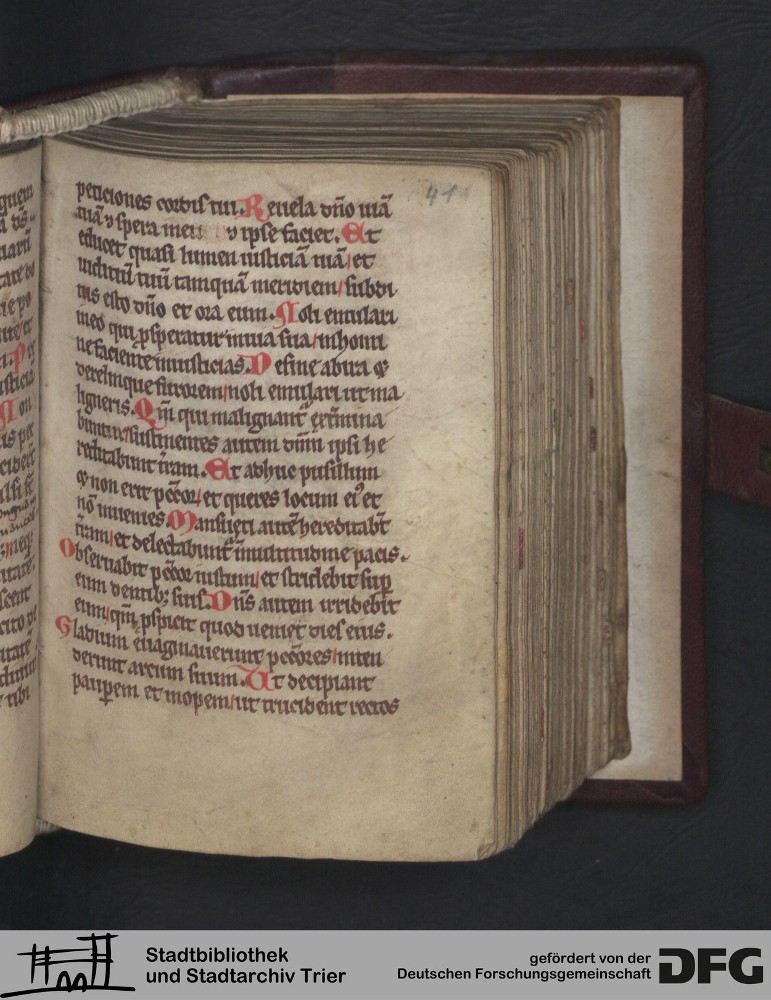 41
peticiones cordis tui. Reuela dño uiã
tuã ⁊ spera in eu ⁊ ipse faciet. Et
educet quasi lumen iusticiã tuã et
iudiciũ tuũ tamquã meridiem / subdi
tus esto dño et ora eum. Noli emulari
in eo qui ꝓsperatur in uia sua / in homi
ne faciente iniusticias. Desine ab ira ⁊
derelinque furorem / noli emulari ut ma
ligneris. Qm̃ qui malignant̃ ext̃mina
buntur / sustinentes autem dñm ipsi he
reditabunt t̃ram. Et adhuc pusillum
⁊ non erit pc̃cor / et queres locum eiꝰ et
nõ inuenies. Mansueti autẽ hereditabt̃
t̃ram / et delectabunt̃ in multitudine pacis.
Obseruabit pc̃cor iustum / et stridebit suꝑ
eum dentibꝫ suis. Dñs autem irridebit
eum / qm̃ ꝓspicit quod ueniet dies eius.
Gladium euaginauerunt pc̃cores / inten
derunt arcum suum. Ut decipiant
pauꝑem et inopem / ut trucident rectos
Stadtbibliothek
und Stadtarchiv Trier
gefördert von der
Deutschen Forschungsgemeinschaft
DFG